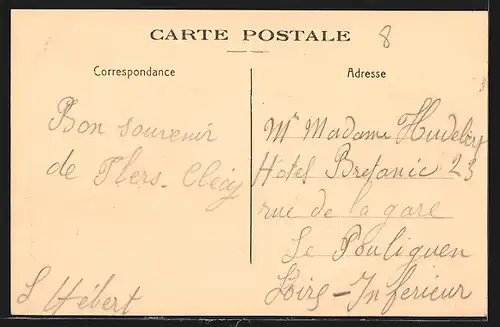 CARTE POSTALE
8
Correspondance
Bon souvenir
de Flers-Clécy
L Hébert
Adresse
Mr Madame
Hotel Bretanic 23
rue de la gare
Le Pouliguen
Loire-Inferieur